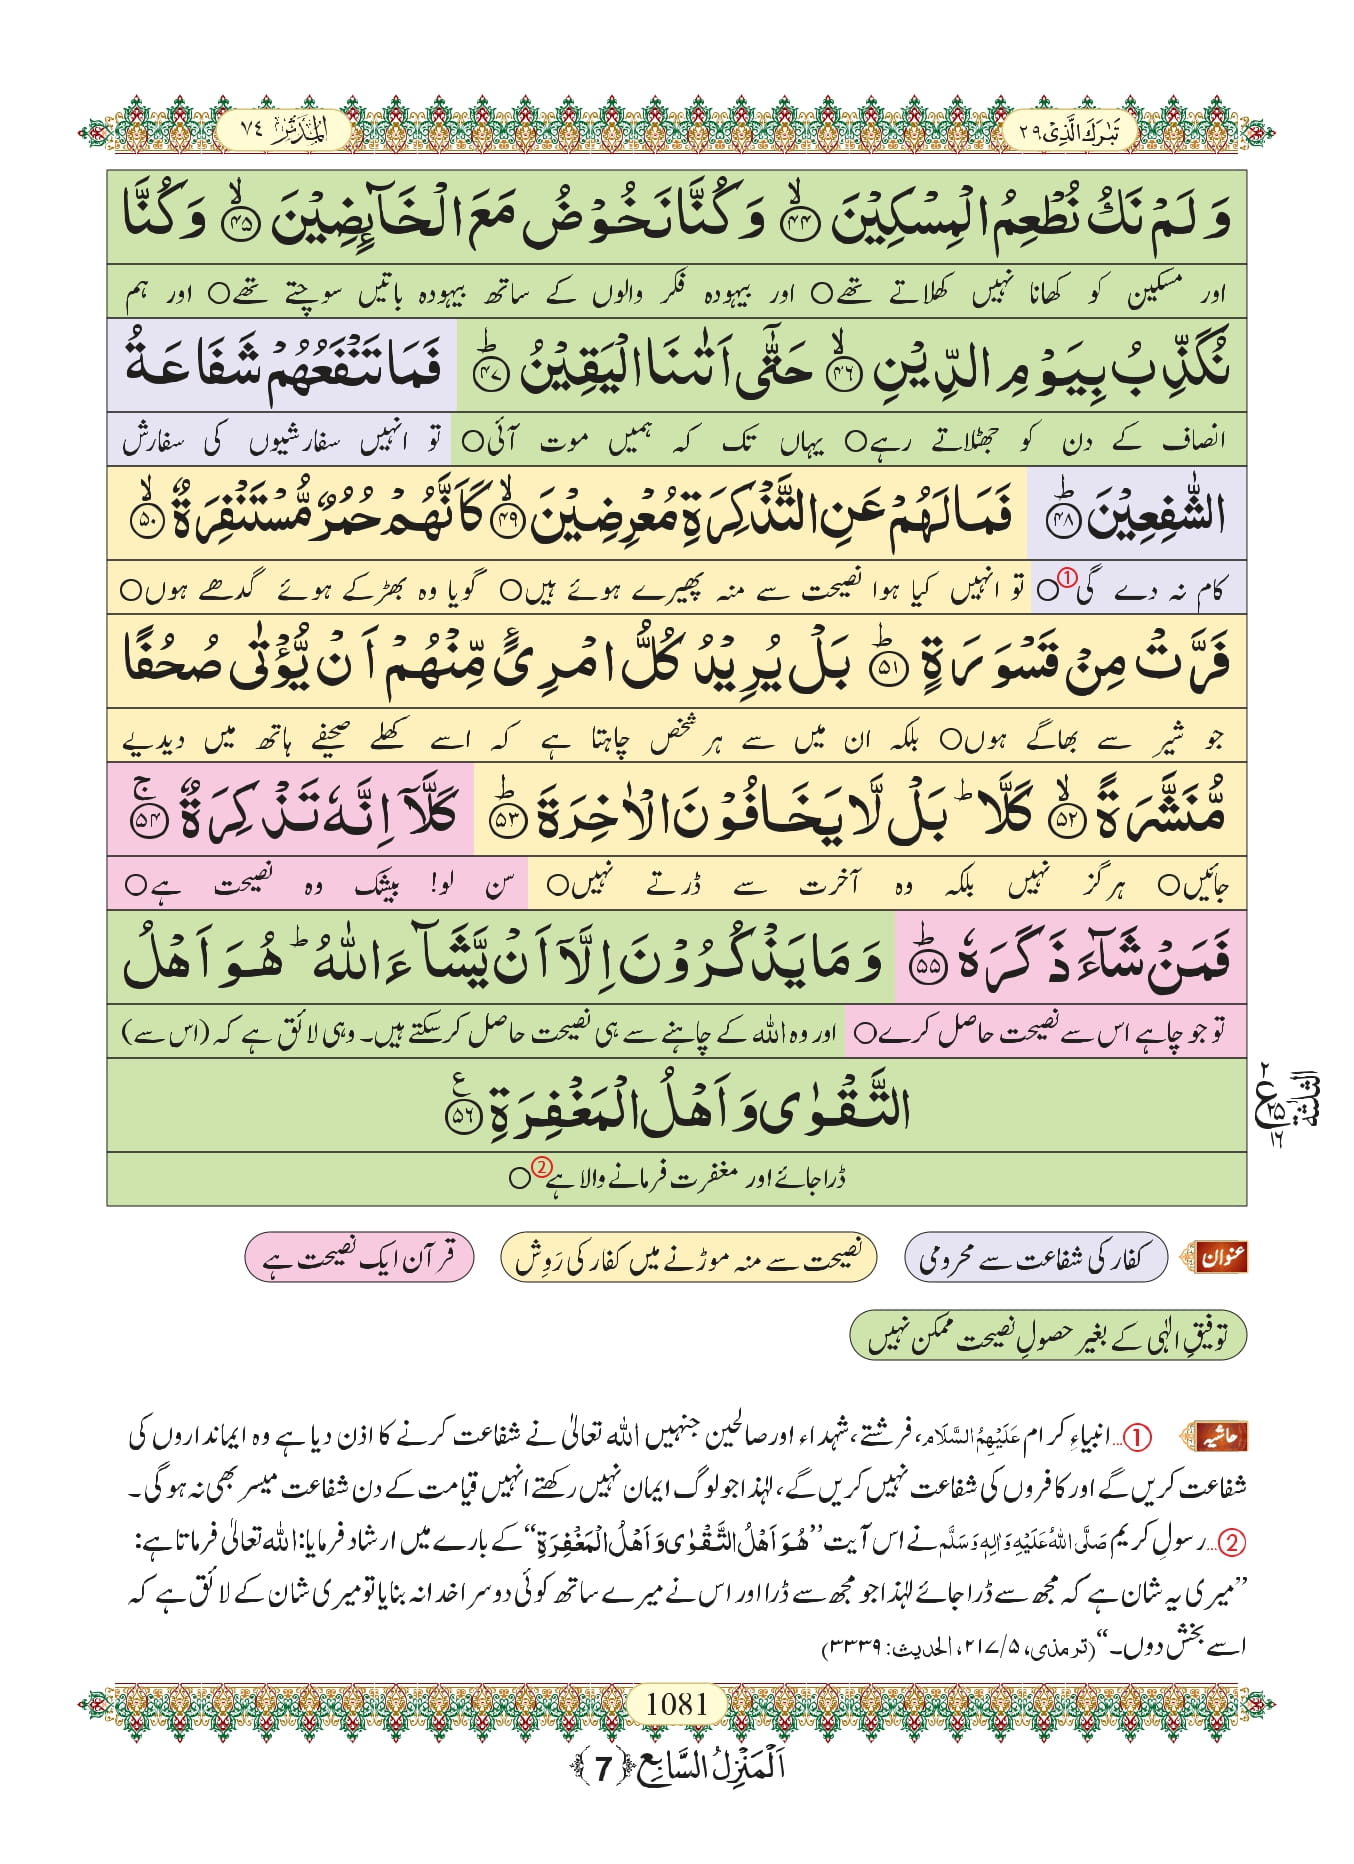 تَبٰرَکَ الَّذِیْ ۲۹
اَلْمُدَّثِّر ۷۴
وَ لَمْ نَكُ نُطْعِمُ الْمِسْكِیْنَۙ۝۴۴ وَ كُنَّا نَخُوْضُ مَعَ الْخَآىٕضِیْنَۙ۝۴۵ وَ كُنَّا
اور مسکین کو کھانا نہیں کھلاتے تھے○ اور بیہودہ فکر والوں کے ساتھ بیہودہ باتیں سوچتے تھے○ اور ہم
نُكَذِّبُ بِیَوْمِ الدِّیْنِۙ۝۴۶ حَتّٰۤى اَتٰىنَا الْیَقِیْنُؕ۝۴۷ فَمَا تَنْفَعُهُمْ شَفَاعَةُ
انصاف کے دن کو جھٹلاتے رہے○ یہاں تک کہ ہمیں موت آئی○ تو انہیں سفارشیوں کی سفارش
الشّٰفِعِیْنَؕ۝۴۸ فَمَا لَهُمْ عَنِ التَّذْكِرَةِ مُعْرِضِیْنَۙ۝۴۹ كَاَنَّهُمْ حُمُرٌ مُّسْتَنْفِرَةٌۙ۝۵۰
کام نہ دے گی① ○ تو انہیں کیا ہوا نصیحت سے منہ پھیرے ہوئے ہیں○ گویا وہ بھڑکے ہوئے گدھے ہوں○
فَرَّتْ مِنْ قَسْوَرَةٍؕ۝۵۱ بَلْ یُرِیْدُ كُلُّ امْرِئٍ مِّنْهُمْ اَنْ یُّؤْتٰى صُحُفًا
جو شیر سے بھاگے ہوں○ بلکہ ان میں سے ہر شخص چاہتا ہے کہ اسے کھلے صحیفے ہاتھ میں دیدیے
مُّنَشَّرَةًۙ۝۵۲ كَلَّاؕ بَلْ لَّا یَخَافُوْنَ الْاٰخِرَةَؕ۝۵۳ كَلَّاۤ اِنَّهٗ تَذْكِرَةٌۚ۝۵۴
جائیں○ ہرگز نہیں بلکہ وہ آخرت سے ڈرتے نہیں○ سن لو! بیشک وہ نصیحت ہے○
فَمَنْ شَآءَ ذَكَرَهٗؕ۝۵۵ وَ مَا یَذْكُرُوْنَ اِلَّاۤ اَنْ یَّشَآءَ اللّٰهُؕ هُوَ اَهْلُ
تو جو چاہے اس سے نصیحت حاصل کرے○ اور وہ اللہ کے چاہنے سے ہی نصیحت حاصل کرسکتے ہیں۔ وہی لائق ہے کہ (اس سے)
التَّقْوٰى وَ اَهْلُ الْمَغْفِرَةِ۠۝۵۶
ڈرا جائے اور مغفرت فرمانے والا ہے② ○
الثلثة
۲
ع
۲۵
۱۶
عنوان
کفار کی شفاعت سے محرومی
نصیحت سے منہ موڑنے میں کفار کی رَوِش
قرآن ایک نصیحت ہے
توفیقِ الٰہی کے بغیر حصولِ نصیحت ممکن نہیں
حاشیہ
①...انبیاءِ کرام عَلَیْہِمُ السَّلَام، فرشتے، شہداء اور صالحین جنہیں اللہ تعالیٰ نے شفاعت کرنے کا اذن دیا ہے وہ ایمانداروں کی
شفاعت کریں گے اور کافروں کی شفاعت نہیں کریں گے، لہٰذا جو لوگ ایمان نہیں رکھتے انہیں قیامت کے دن شفاعت میسر بھی نہ ہوگی۔
②...رسولِ کریم صَلَّی اللہُ عَلَیْہِ وَاٰلِہٖ وَسَلَّم نے اس آیت ”هُوَ اَهْلُ التَّقْوٰى وَ اَهْلُ الْمَغْفِرَةِ“ کے بارے میں ارشاد فرمایا: اللہ تعالیٰ فرماتا ہے:
”میری یہ شان ہے کہ مجھ سے ڈرا جائے لہٰذا جو مجھ سے ڈرا اور اس نے میرے ساتھ کوئی دوسرا خدا نہ بنایا تو میری شان کے لائق ہے کہ
اسے بخش دوں۔“ (ترمذی، ۵/۲۱۷، الحدیث: ۳۳۳۹)
1081
اَلْمَنْزِلُ السَّابِع ﴿7﴾